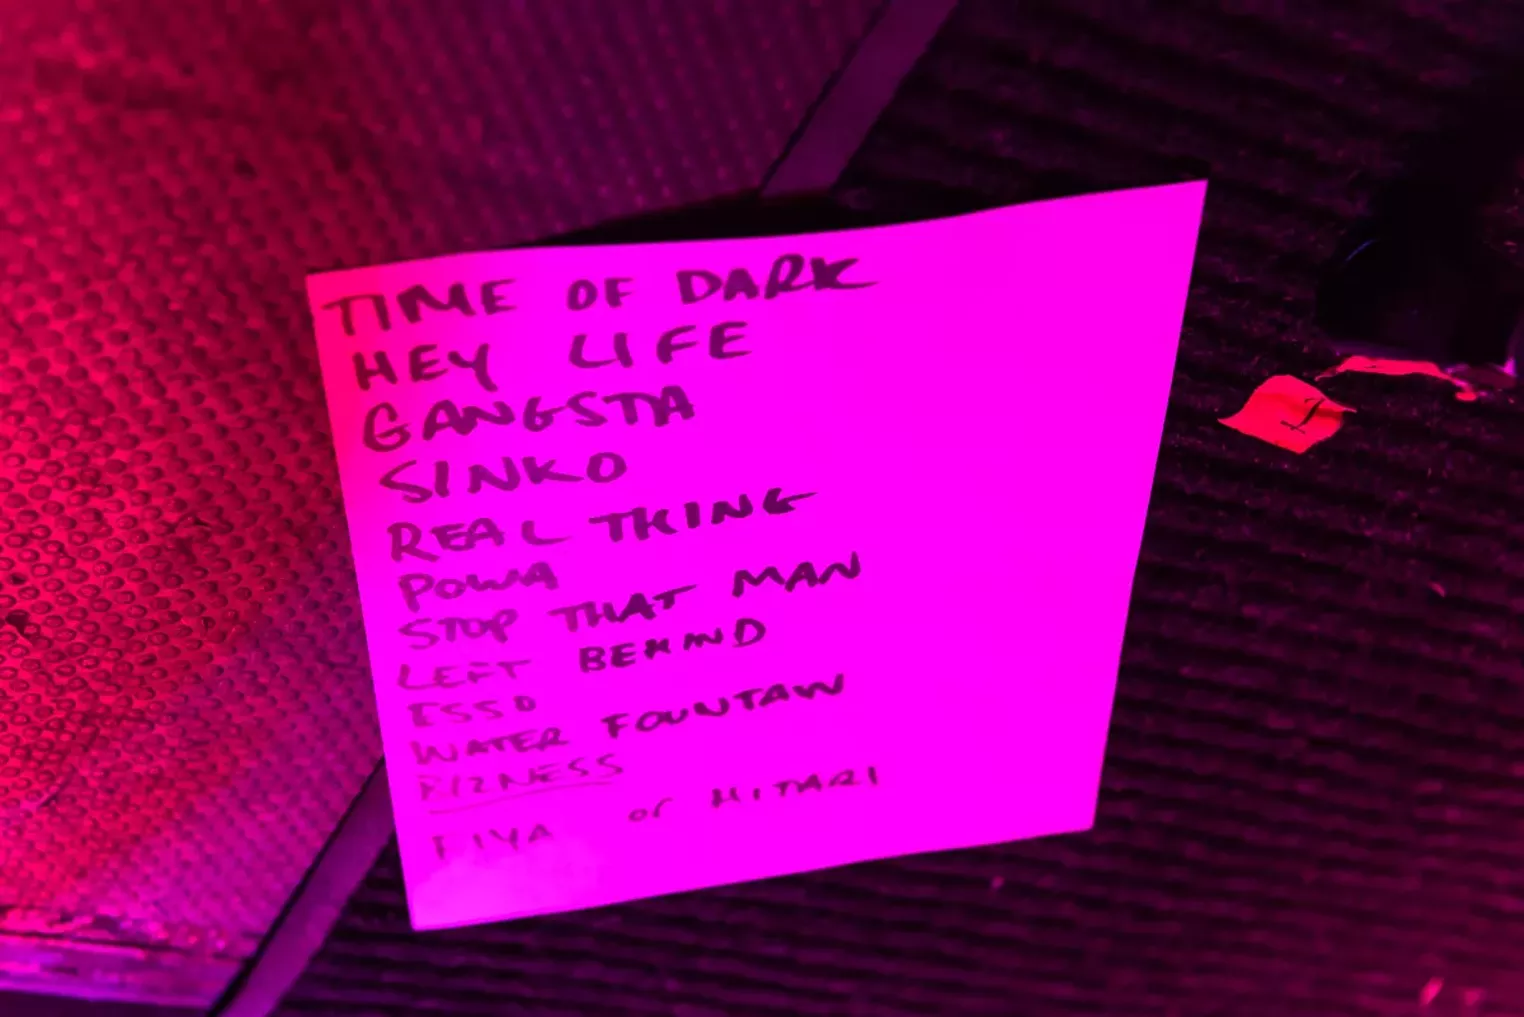 TIME OF DARK
HEY LIFE
GANGSTA
SINKO
REAL THING
POWA
STOP THAT MAN
LEFT BEHIND
ESSO
WATER FOUNTAIN
BIZNESS
FIYA or HITARI